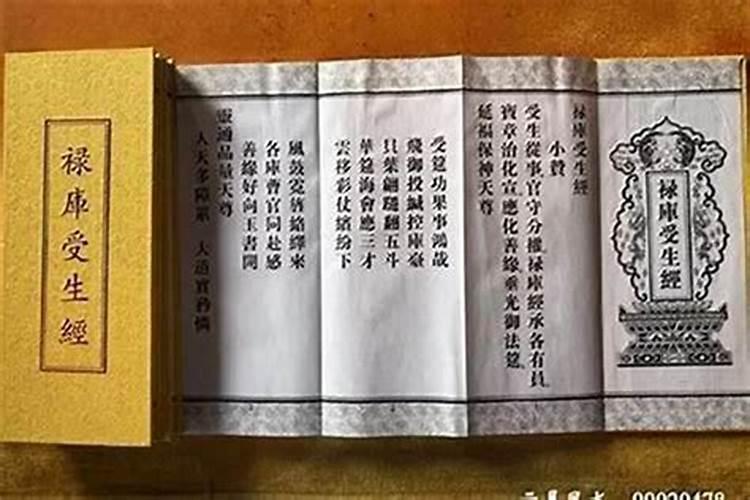 祿庫受生經
祿庫受生經
祿庫受生經
小贊
受生從事官守分權祿庫經承各有員
寶章治化宣應化善緣垂光御法筵
延福保神天尊
受筵功果事鴻哉
飛御投緘控庫臺
貝葉翩翩五斗
華筵海會應三才
雲移彩仗繽紛下
風鼓霓旌絡繹來
各庫曹官同赴感
善緣好向玉書開
靈通品量天尊
人天多障 大道實矜憐